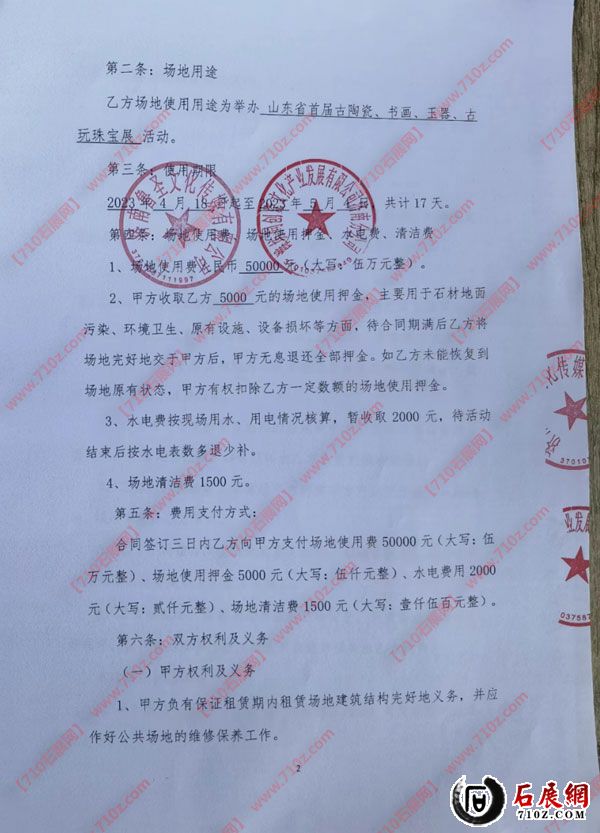 第二条：场地用途
乙方场地使用用途为举办 山东省首届古陶瓷、书画、玉器、古
玩珠宝展 活动。
第三条：使用期限
2023 年 4 月 18 日起至 2023 年 5 月 4 日 共计 17 天。
第四条：场地使用费、场地使用押金、水电费、清洁费
1、场地使用费人民币 50000 元（大写：伍万元整）。
2、甲方收取乙方 5000 元的场地使用押金，主要用于石材地面
污染、环境卫生、原有设施、设备损坏等方面，待合同期满后乙方将
场地完好地交于甲方后，甲方无息退还全部押金。如乙方未能恢复到
场地原有状态，甲方有权扣除乙方一定数额的场地使用押金。
3、水电费按现场用水、用电情况核算，暂收取 2000 元，待活动
结束后按水电表数多退少补。
4、场地清洁费 1500 元。
第五条：费用支付方式：
合同签订三日内乙方向甲方支付场地使用费 50000 元（大写：伍
万元整）、场地使用押金 5000 元（大写：伍仟元整）、水电费用 2000
元（大写：贰仟元整）、场地清洁费 1500 元（大写：壹仟伍佰元整）。
第六条：双方权利及义务
（一）甲方权利及义务
1、甲方负有保证租赁期内租赁场地建筑结构完好地义务，并应
作好公共场地的维修保养工作。
2
【710石展网】www.710z.com
石展網
710Z.COM